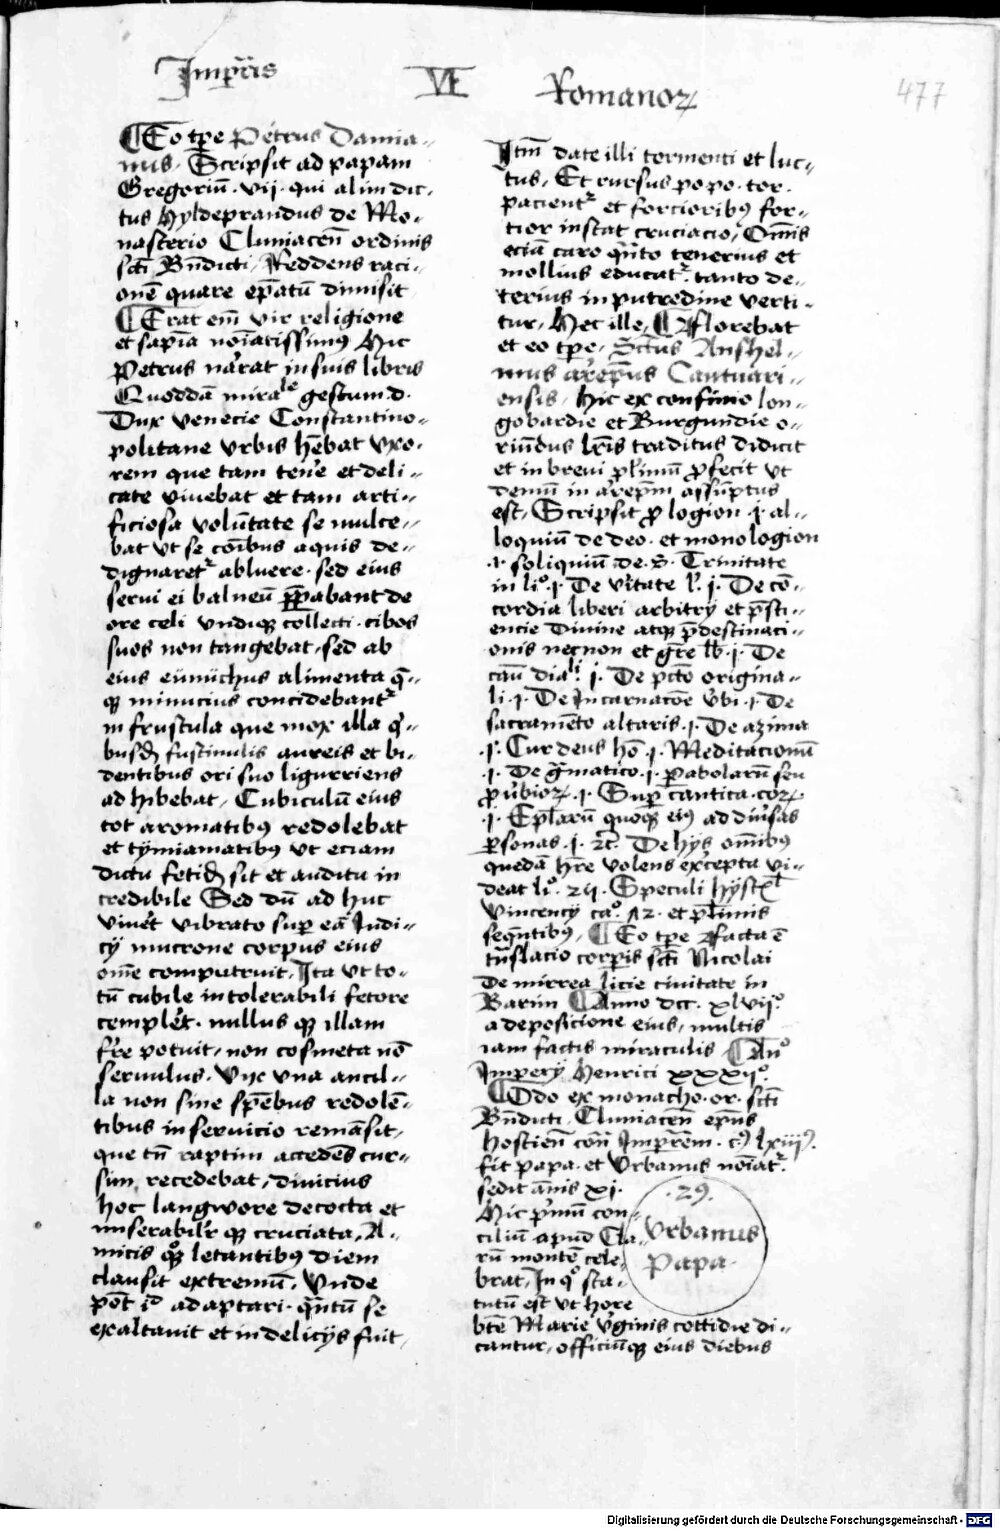 Imp̄ris VI Romanoꝝ 477
¶ Eo tp̄e Petrus Damia-
nus. Scripsit ad papam
Gregoriū. vij. qui alim dic-
tus Hyldeprandus de Mo-
nasterio Cluniaceñ ordinis
scti Bñdicti, Reddens raci-
onē quare ep̄atū dimisit
¶ Erat em̄ vir religione
et sapīa noīatissimꝰ Hic
Petrus nārat in suis libris
Quoddā miraˡᵉ gestum. d.
Dux venecie Constantino-
politane vrbis hēbat vxo-
rem que tam tenēre et deli-
cate viuebat et tam arti-
ficiosa volūtate se mulce-
bat vt se cōībus aquis de-
dignaretʳ abluere. sed eius
serui ei balneū p̄pabant de
ore celi vndiqꝫ collecti. cibos
suos non tangebat. sed ab
eius eunuchus alimenta q̄-
qꝫ minucius concidebantʳ
in frustula que mox illa q̄-
busdā fustinulis aureis et bi-
dentibus ori suo ligurriens
ad hibebat, Cubiculū eius
tot aromatibꝰ redolebat
et tymiamatibꝰ vt eciam
dictu fetidū sit et auditu in
credibile Sed dū ad huc
viuēt vibrato sup̄ eā Iudi-
cij mucrone corpus eius
om̄e computruit, Ita vt to-
tū cubile intolerabili fetore
complēt. nullus qꝫ illam
fr̄re potuit, non cosmeta nō
seruulus. vix vna ancil-
la non sine sp̄ebus redolē-
tibus in seruicio remāsit,
que tn̄ raptim accedēs cur-
sim recedebat, diucius
hoc langwore decocta et
miserabilīr qꝫ cruciata, A-
micis qꝫ letantibꝰ diem
clausit extremū. Vnde
pōt id adaptari. q̄ntū se
exaltauit et in delicijs fuit,
Itm̄ date illi tormenti et luc-
tus, Et rursus po po. tor.
pacientʳ et forcioribꝰ for-
tior instat cruciacio, Om̄is
eciā caro q̄nto tenerius et
mollius educatʳ. tanto de-
terius in putredine verti-
tur, Hec ille, ¶ Aflorebat
et eo tp̄e, Sctūs Anshel-
mus ar̄ep̄us Cantuari-
ensis, hic ex confinio lon-
gobardie et Burgundie o-
riūdus lr̄is traditus didicit
et in breui plīmū profecit vt
demū in ar̄ep̄m assūptus
est, Scripsit prologion .i. al-
loquiū de deo. et monologion
.i. soliquiū de. S. Trinitate
in liº .i. De v̄itate l. i. De cō-
cordia liberi arbitrij et p̄sci-
encie Diuine atqꝫ p̄destinaci-
onis necnon et grē lb. i. De
cau diaˡⁱ. i. De pctō origina-
li .i. De Incarnacōe v̄bi .i. De
sacramēto altaris .i. De azima
.i. Cur deus hō .i. Meditacionū
.i. De gmatico .i. pabolarū seu
pro v̄bioꝝ .i. Sup̄ cantica. coꝝ.
.i. Ep̄larū quoqꝫ eiꝰ ad diūsas
p̄sonas .i. ꝛc. De hijs om̄ibꝰ
quedā hrē volens excepta vi-
deat liº. 24. Speculi hyst
Vincencij caº. 72. et plīmis
seqn̄tibꝰ, ¶ Eo tp̄e Facta ē
tn̄slacio corp̄is scti Nicolai
De mirrea licie ciuitate in
Barim ¶ Anno dcc. xlvijº.
a deposicione eius, multis
iam factis miraculis ¶ Anº
Imperij Henrici xxxijº.
¶ Odo ex monacho. or. scti
Bñdicti. Cluniaceñ ep̄us
hostieñ con̄ Imp̄rem. cꝰ lxiiijº.
fit papa. et Vrbanus noīatʳ.
sedit annis xi.
Hic p̄mū con-
ciliū apud Cla-
rū montē cele-
brat, In qº sta-
tutū est vt hore
btē Marie v̄ginis cottidie di-
cantur, officiūqꝫ eius diebus
.29.
Vrbanus
Papa.
Digitalisierung gefördert durch die Deutsche Forschungsgemeinschaft - DFG